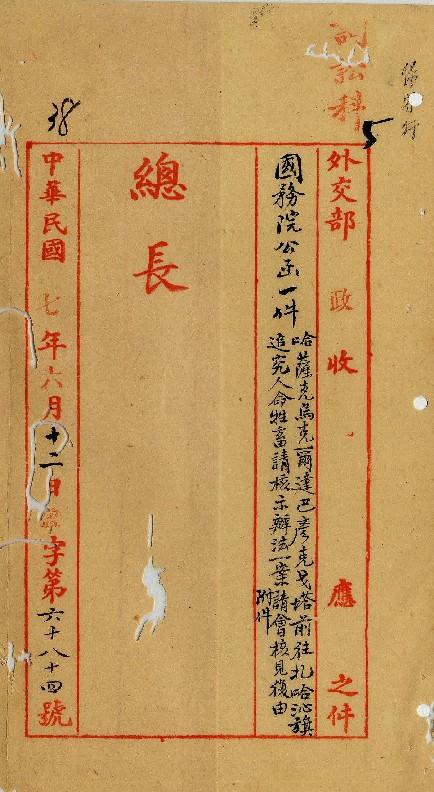 訴訟科
5
38
外交部 政 收 應 之件
國務院公函一件
哈薩克烏克爾達巴彥克戈塔前往扎哈沁旗
追究人命牲畜請核示辦法一案請會核見復由
附件
總長
中華民國 七年六月十二日 字第六十八十四號